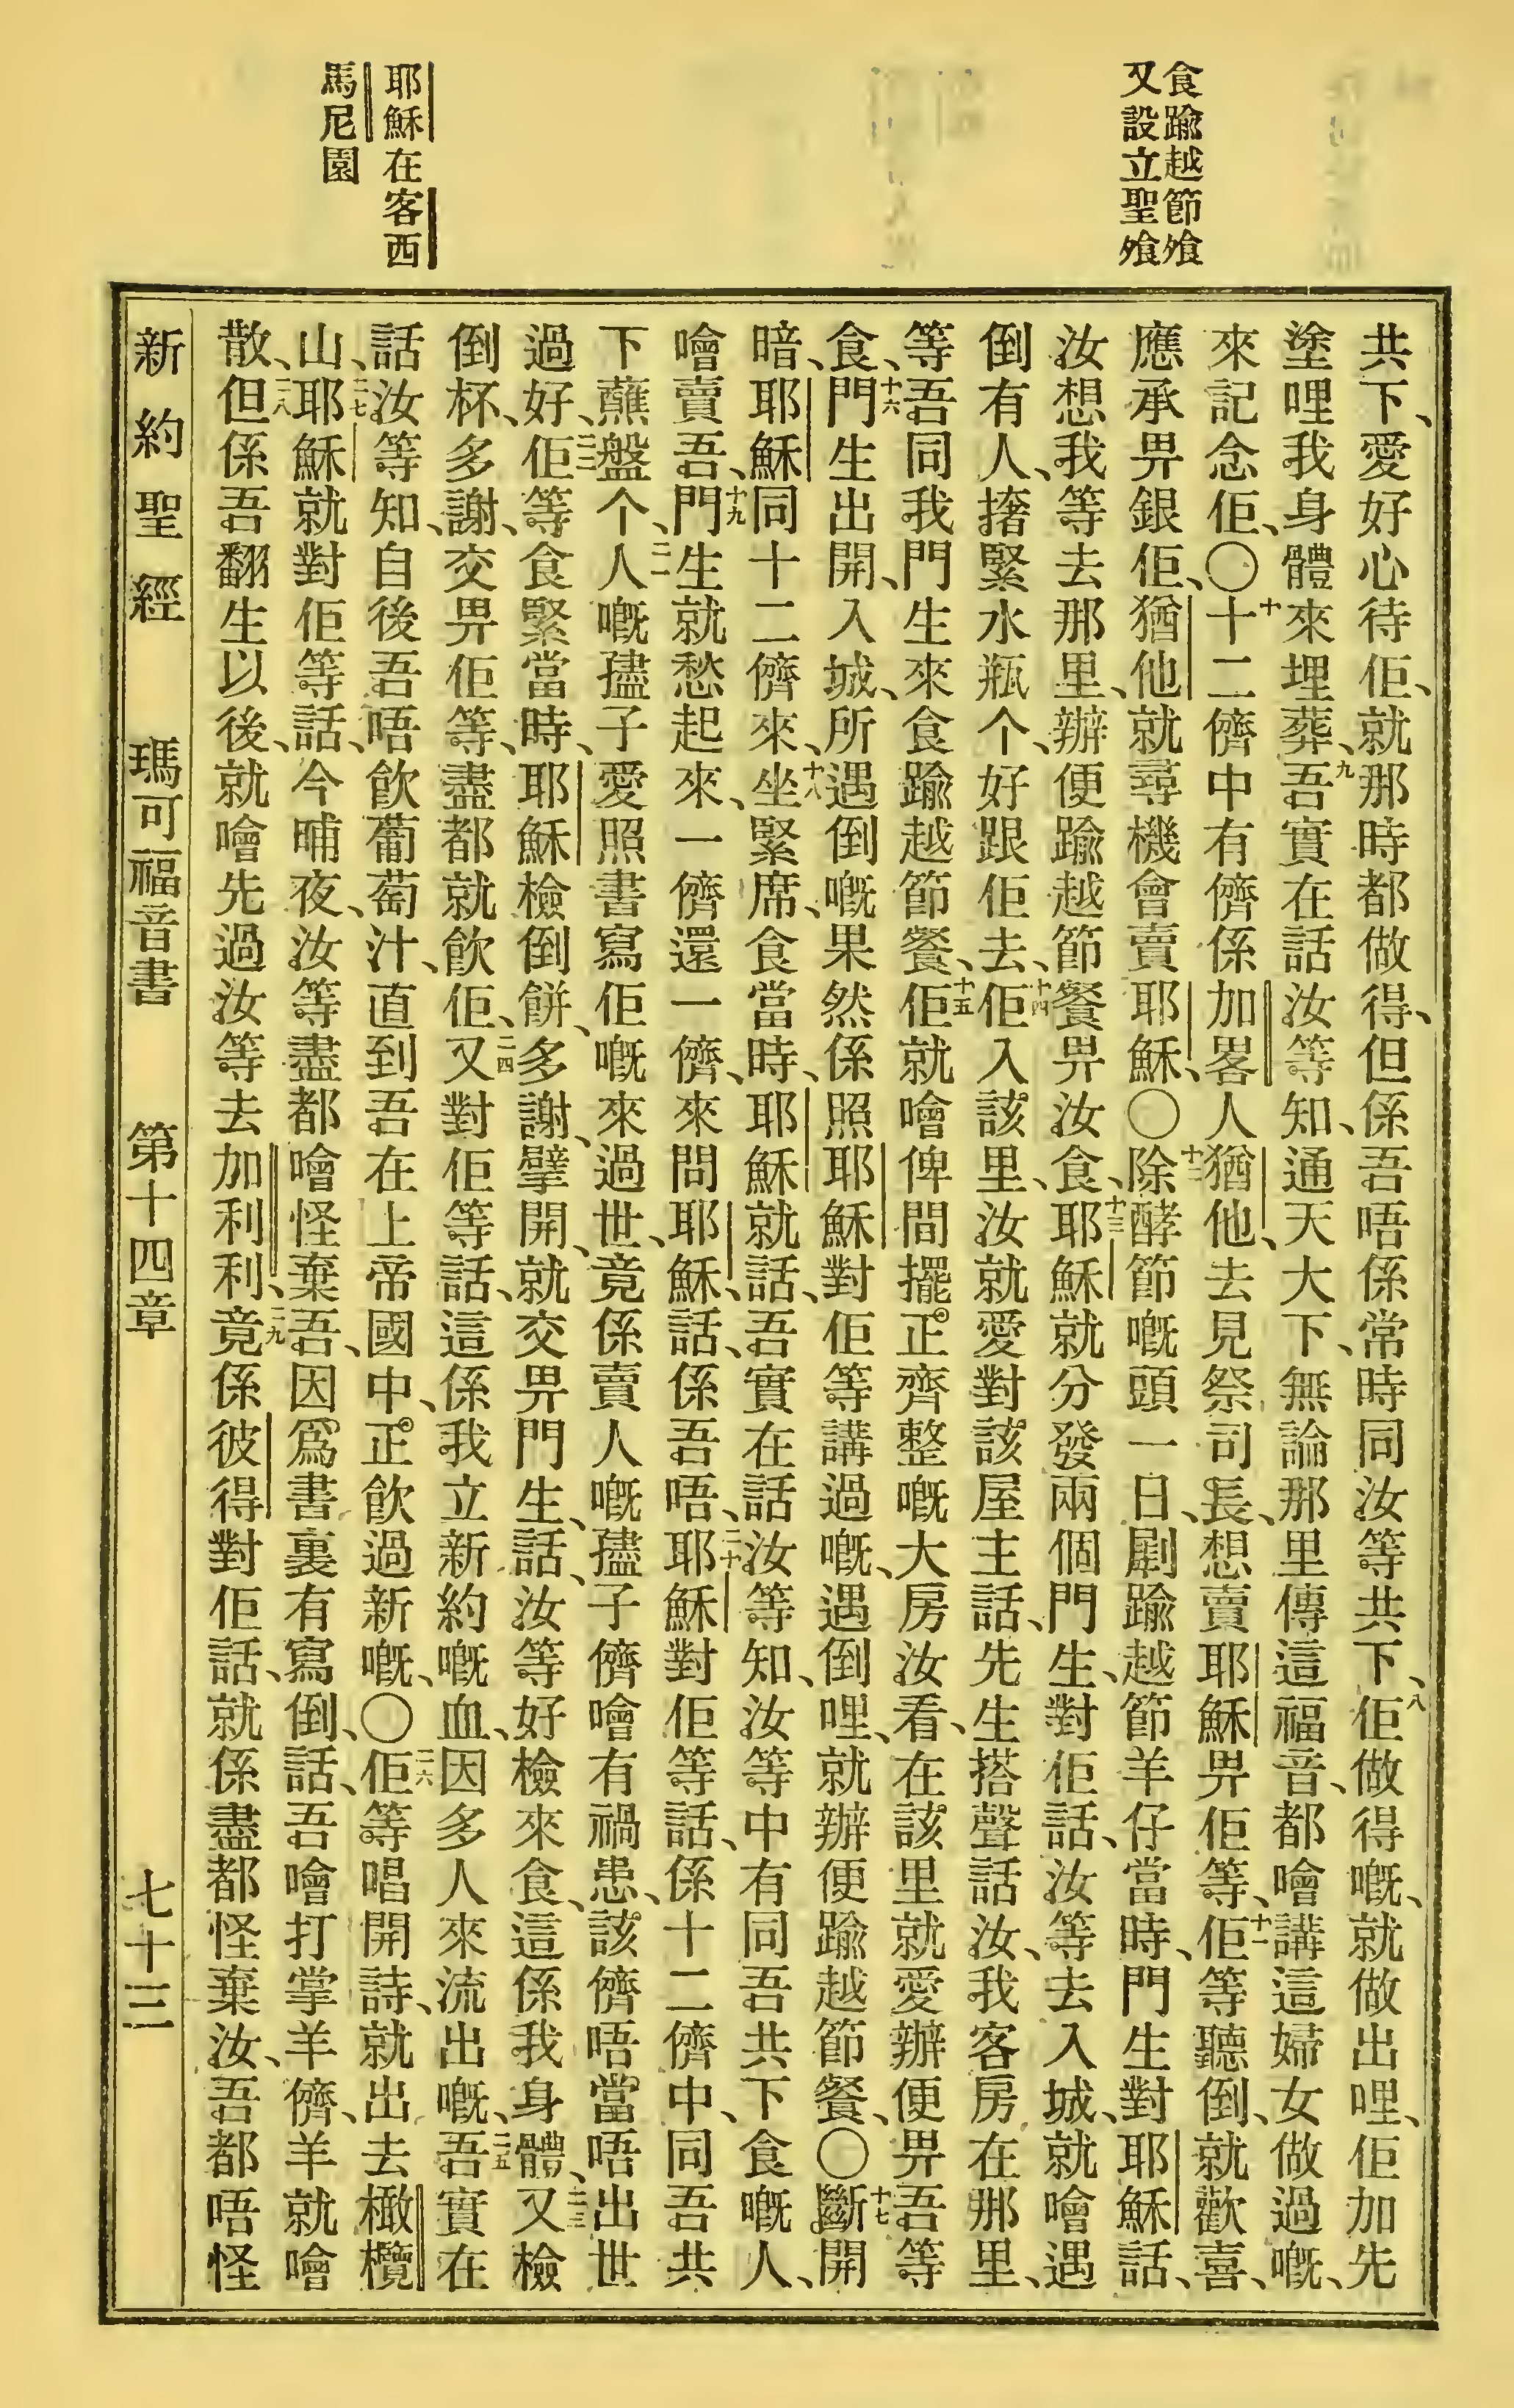 食踰越節飧
又設立聖飧
耶穌在客西
馬尼園
共下、愛好心待佢、就那時都做得、但係吾唔係常時同汝等共下、八佢做得嘅、就做出哩、佢加先
塗哩我身體來埋葬、九吾實在話汝等知、通天大下、無論那里傳這福音、都噲講這婦女做過嘅、
來記念佢、〇十十二儕中有儕係加畧人猶他、去見祭司長、想賣耶穌畀佢等、十一佢等聽倒、就歡喜、
應承畀銀佢、猶他就尋機會賣耶穌、〇十二除酵節嘅頭一日、劏踰越節羊仔當時、門生對耶穌話、
汝想我等去那里、辦便踰越節餐畀汝食、十三耶穌就分發兩個門生、對佢話、汝等去入城、就噲遇
倒有人、𢲡緊水瓶个、好跟佢去、十四佢入該里、汝就愛對該屋主話、先生搭聲話汝、我客房在那里、
等吾同我門生來食踰越節餐、十五佢就噲俾間擺正齊整嘅大房汝看、在該里就愛辦便畀吾等
食、十六門生出開、入城、所遇倒嘅果然係照耶穌對佢等講過嘅、遇倒哩、就辦便踰越節餐、〇十七斷開
暗、耶穌同十二儕來、十八坐緊席、食當時、耶穌就話、吾實在話汝等知、汝等中有同吾共下食嘅人、
噲賣吾、十九門生就愁起來、一儕還一儕、來問耶穌話、係吾唔、二十耶穌對佢等話、係十二儕中、同吾共
下蘸盤个、二一人嘅孻子愛照書寫佢嘅來過世、竟係賣人嘅孻子儕噲有禍患、該儕唔當唔出世
過好、二二佢等食緊當時、耶穌檢倒餅、多謝、擘開、就交畀門生、話、汝等好檢來食、這係我身體、二三又檢
倒杯、多謝、交畀佢等、盡都就飲佢、二四又對佢等話、這係我立新約嘅血、因多人來流出嘅、二五吾實在
話汝等知、自後吾唔飲葡萄汁、直到吾在上帝國中、正飲過新嘅、〇二六佢等唱開詩、就出去橄欖
山、二七耶穌就對佢等話、今晡夜、汝等盡都噲怪棄吾、因爲書裏有寫倒、話、吾噲打掌羊儕、羊就噲
散、二八但係吾翻生以後、就噲先過汝等去加利利、二九竟係彼得對佢話、就係盡都怪棄汝、吾都唔怪
新約聖經 瑪可福音書 第十四章 七十三